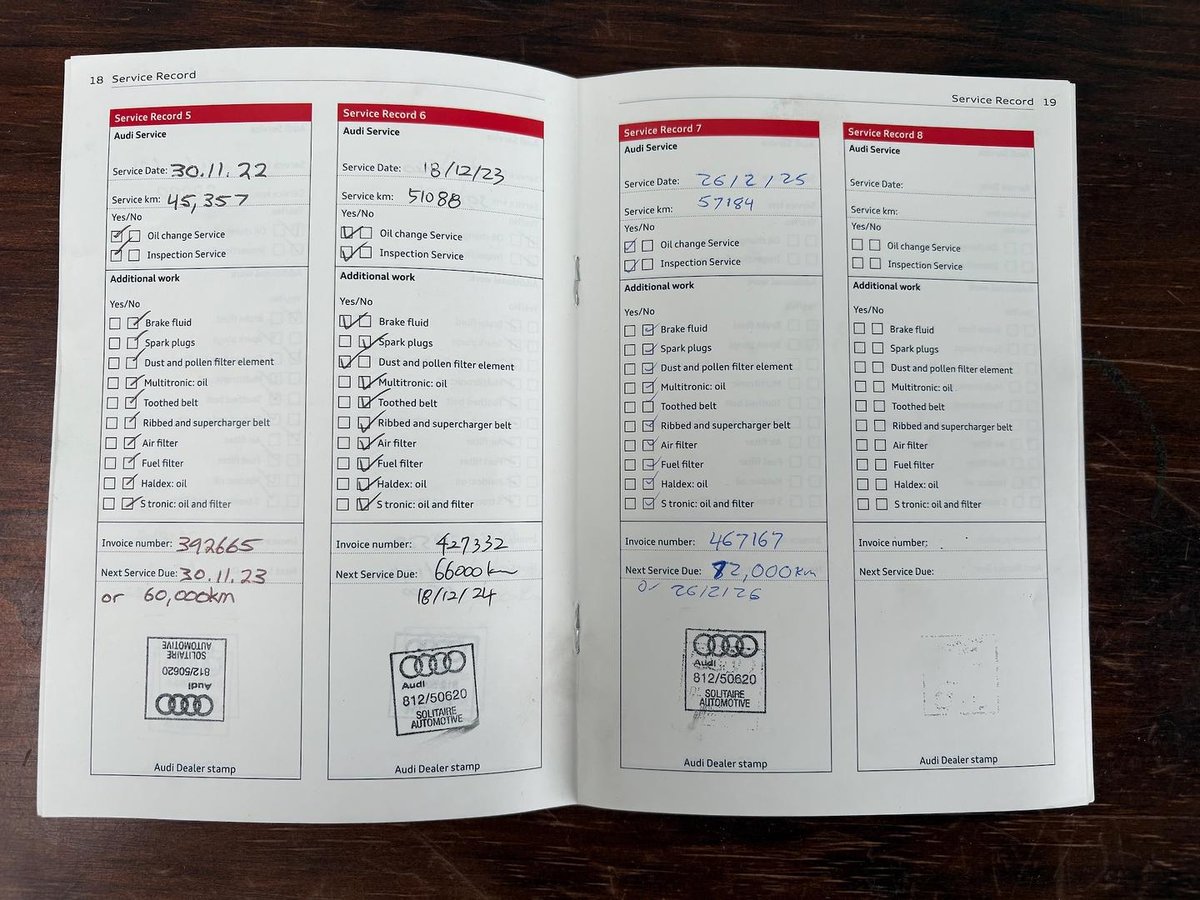 18 Service Record
Service Record 5
Audi Service
Service Date: 30.11.22
Service km: 45,357
Yes/No
Oil change Service
Inspection Service
Additional work
Yes/No
Brake fluid
Spark plugs
Dust and pollen filter element
Multitronic: oil
Toothed belt
Ribbed and supercharger belt
Air filter
Fuel filter
Haldex: oil
S tronic: oil and filter
Invoice number: 392665
Next Service Due: 30.11.23
or 60,000km
SOLITAIRE
AUTOMOTIVE
812/50620
Audi
Audi Dealer stamp
Service Record 6
Audi Service
Service Date: 18/12/23
Service km: 51088
Yes/No
Oil change Service
Inspection Service
Additional work
Yes/No
Brake fluid
Spark plugs
Dust and pollen filter element
Multitronic: oil
Toothed belt
Ribbed and supercharger belt
Air filter
Fuel filter
Haldex: oil
S tronic: oil and filter
Invoice number: 427332
Next Service Due: 66000km
18/12/24
Audi
812/50620
SOLITAIRE
AUTOMOTIVE
Audi Dealer stamp
Service Record 19
Service Record 7
Audi Service
Service Date: 26/2/25
Service km: 57184
Yes/No
Oil change Service
Inspection Service
Additional work
Yes/No
Brake fluid
Spark plugs
Dust and pollen filter element
Multitronic: oil
Toothed belt
Ribbed and supercharger belt
Air filter
Fuel filter
Haldex: oil
S tronic: oil and filter
Invoice number: 467167
Next Service Due: 72,000km
or 26/2/26
Audi
812/50620
SOLITAIRE
AUTOMOTIVE
Audi Dealer stamp
Service Record 8
Audi Service
Service Date:
Service km:
Yes/No
Oil change Service
Inspection Service
Additional work
Yes/No
Brake fluid
Spark plugs
Dust and pollen filter element
Multitronic: oil
Toothed belt
Ribbed and supercharger belt
Air filter
Fuel filter
Haldex: oil
S tronic: oil and filter
Invoice number:
Next Service Due:
Audi Dealer stamp